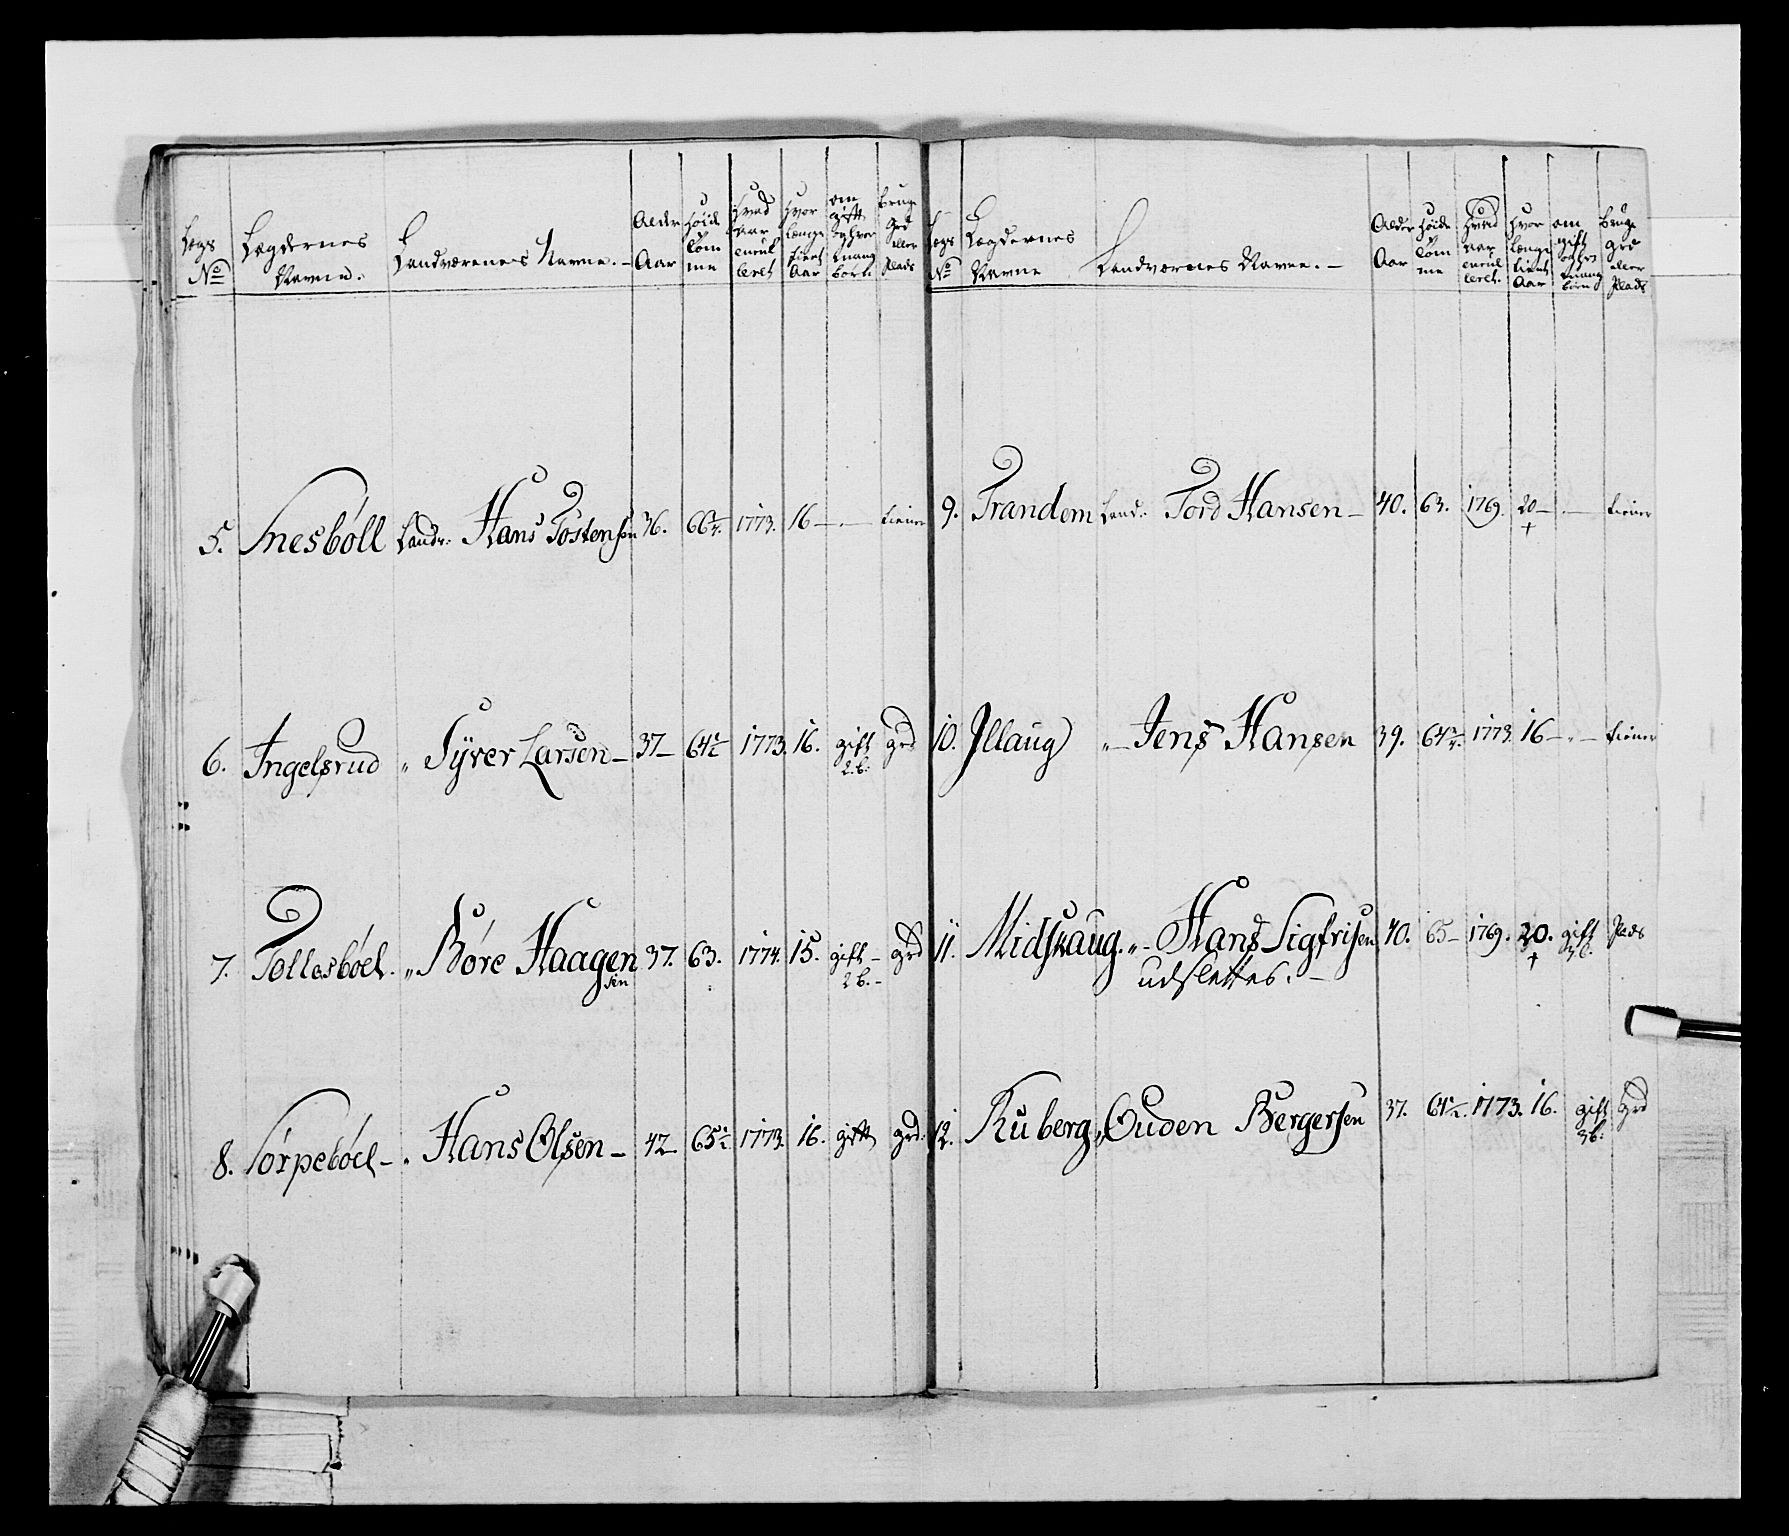 Legs No | Legdernes Navne. | Landværenes Navne. - | Alder Aar | Høide Tom me | Hvad Aar enrul leret | Hvor længe tient Aar | om gift og hvor mang børn | bruge grd eller Plads
5. Snesböll Landv: Hans Tostensen 36. 66 1/4. 1773. 16 - . - tiener
6. Ingelsrud " Syver Larsen - 37 - 64 1/2 1773. 16. gift grd
2. b.
7. Tollesböel. " Böre Haagen 37. 63. 1774. 15. gift - grd
sen 2 b. -
8. Sörpeböel - " Hans Olsen - 42 - 65 1/2 1773. 16. gift grd.
Legs No | Legdernes Navne | Landværnes Navne. - | Alder Aar | Høide Tom me | Hvad aar enrul leret. | Hvor længe tient Aar | om gift og hvor mang børn | bruge grd eller Plads
9. Trandem Land: Tord Hansen - 40. 63. 1769. 20 - . - tiener
+
10. Illaug " - Jens Hansen 39. 64 3/4. 1773. 16 - " - tiener
11. Midskaug. " - Hans Sigfrisen 40. 65 - 1769. 20. gift Plads
udslettes. - + 3 b.
12. Ruberg " Ouden Bergersen 37. 64 1/2. 1773. 16. gift Grd
3 b.